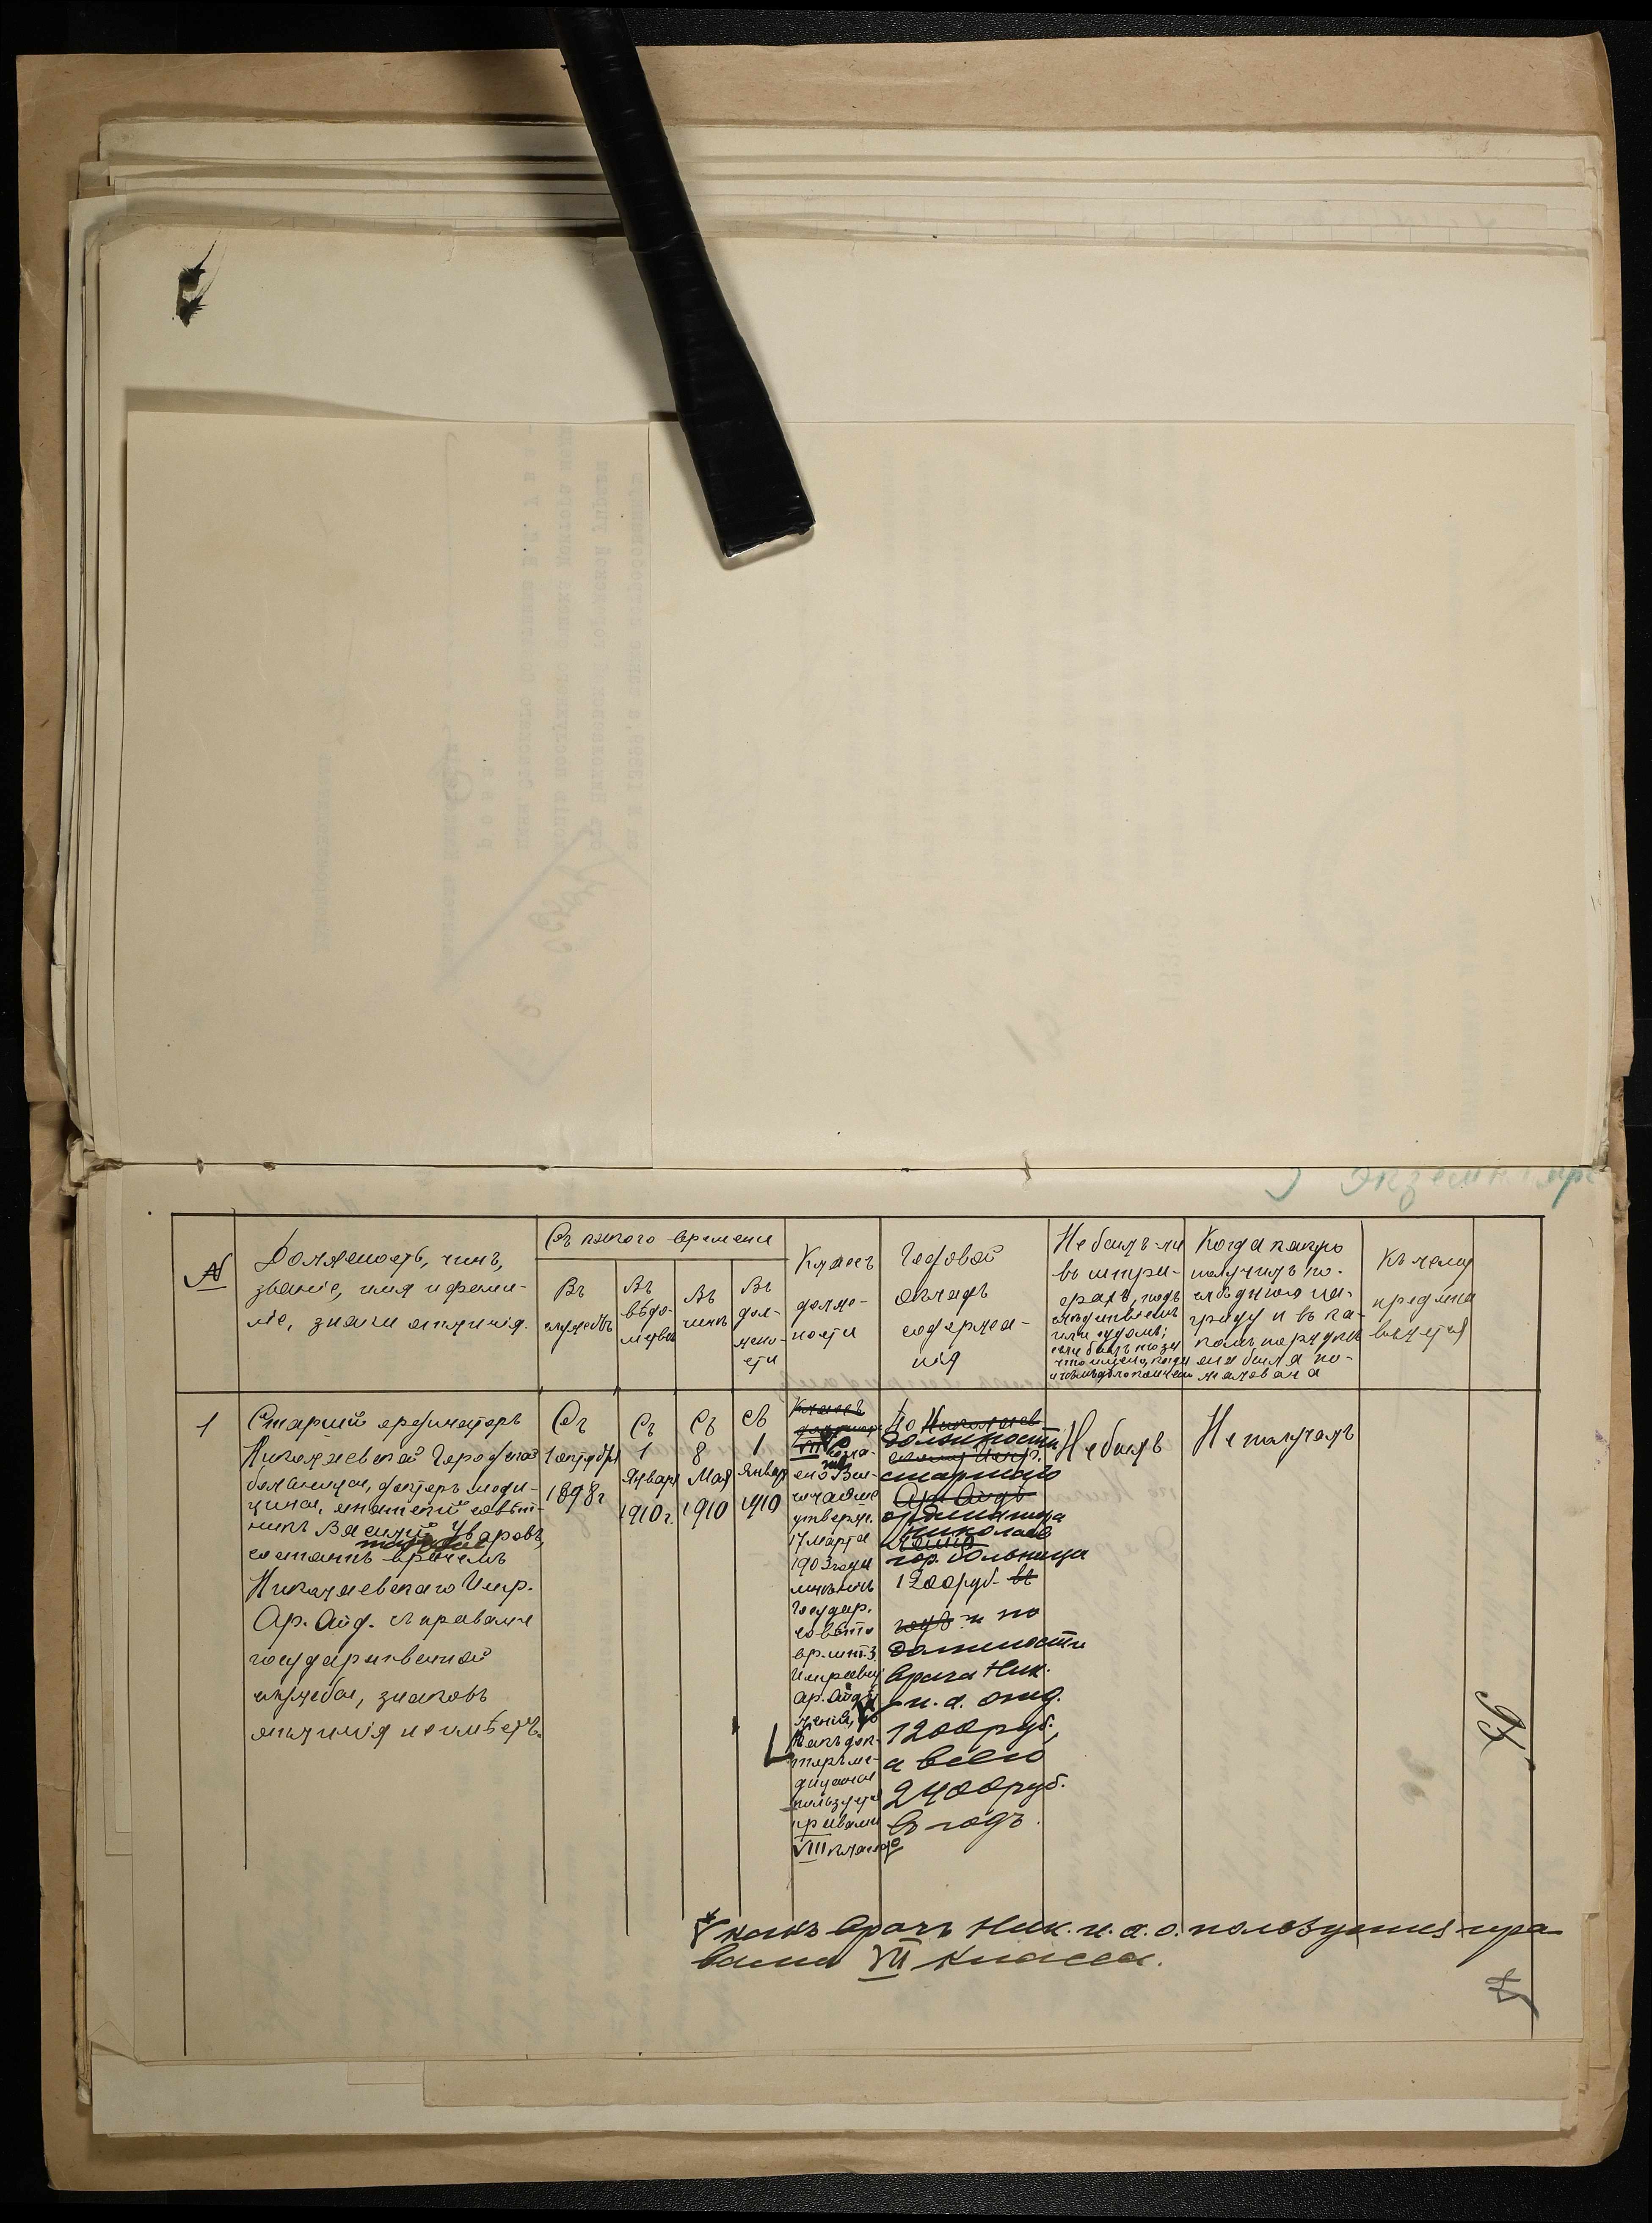 Экземпляръ
№
Должность, чинъ,
званіе, имя и фами-
ліе, знаки отличія.
Съ какого времени
Въ
службѣ
Въ
вѣдо-
мствѣ
Въ
чинѣ
Въ
дол-
жно-
сти
Классъ
должно-
ности
Годовой
окладъ
содержа-
нія
Не былъ-ли
въ штра-
фахъ, подъ
слѣдствіемъ
или судомъ;
если былъ, то за
что именно, когда
и чѣмъ дѣло кончено
Когда какую
получилъ по-
слѣднюю на-
граду и въ ка-
комъ порядкѣ
она была по-
жалована
Къ чему
предста
вляется
1
Старшій ординаторъ
Николаевской Городской
больницы, докторъ меди-
цины, статскій совѣт-
никъ Василій Уваровъ,
состоитъ врачемъ
Николаевскаго Испр.
Ар. Отд. съ правами
государственной
службы, знаковъ
отличія не имѣетъ.
Съ
1 октября
1898 г
Съ
1
Января
1910 г.
Съ
8
Мая
1910
Съ
1
Января
1910
Классъ
VII
сно Вы-
сочайше
утвержд.
17 марта
1903 года
мнѣнію
Государ.
совѣта
вр. шт.
Исправ.
Ар. Отд
Какъ док-
торъ ме-
дицины
пользуется
правами
VIII класса
По Николаев
должности
старшаго
Ар. Отдѣ
ординатора
Николаев
гор. больницы
1200 руб. въ
годъ и по
должности
врача Ник.
и. а. отд.
1200 руб.,
а всего
2400 руб.
въ годъ.
Не былъ
Не получалъ
какъ врачъ Ник. и. а. о. пользуется пра-
вами VII класса.